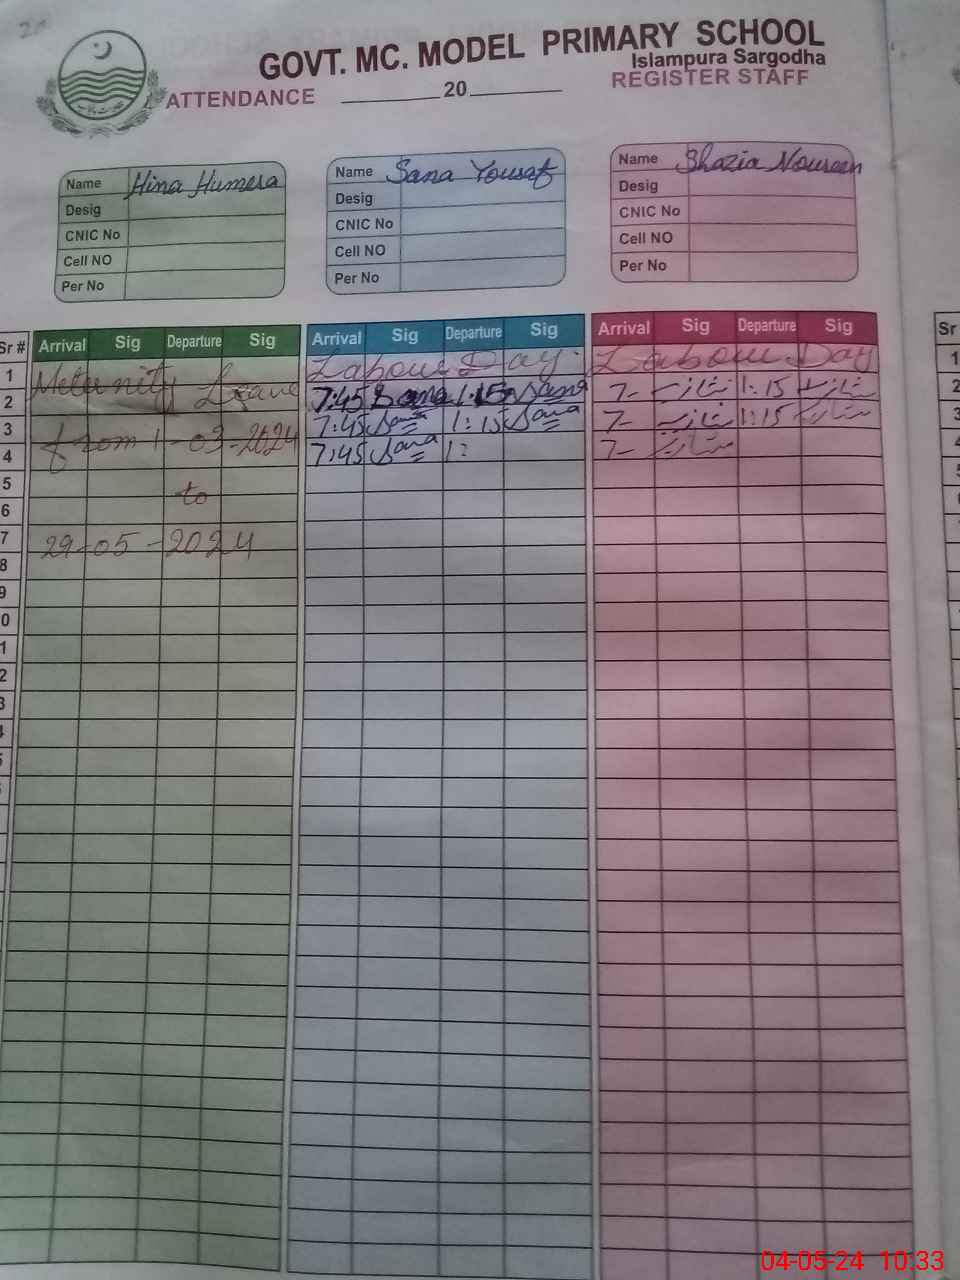 GOVT. MC. MODEL PRIMARY SCHOOL
Islampura Sargodha
ATTENDANCE 20 REGISTER STAFF
Name Hina Humera
Desig
CNIC No
Cell NO
Per No
Name Sana Yousaf
Desig
CNIC No
Cell NO
Per No
Name Shazia Noureen
Desig
CNIC No
Cell NO
Per No
Sr # Arrival Sig Departure Sig Arrival Sig Departure Sig Arrival Sig Departure Sig Sr
1 Meternity Leave Labour Day Labour Day 1
2 7:45 Sana 1:15 Sana 7- شازیہ 1:15 شازیہ 2
3 from 1-03-2024 7:45 Sana 1:15 Sana 7- شازیہ 1:15 شازیہ 3
4 7:45 Sana 1: 7- شازیہ 4
5
6 to
7 29-05-2024
8
9
0
1
2
3
04-05-24 10:33